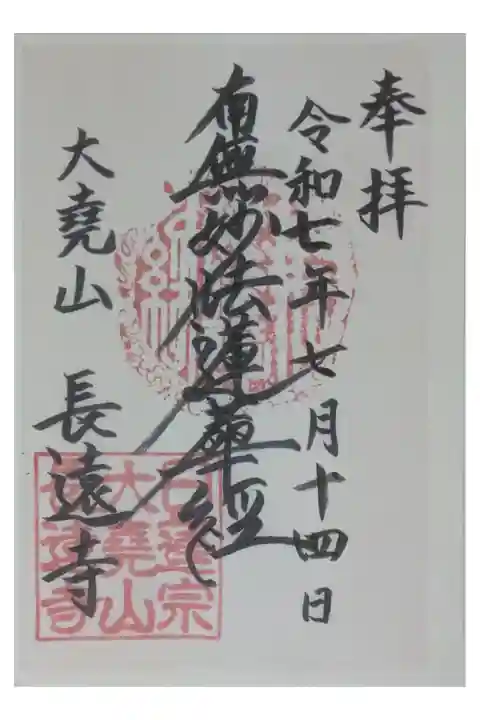 奉拝
令和七年七月十四日
南無妙法蓮華經
大堯山 長遠寺
日蓮宗
大堯山
長遠寺